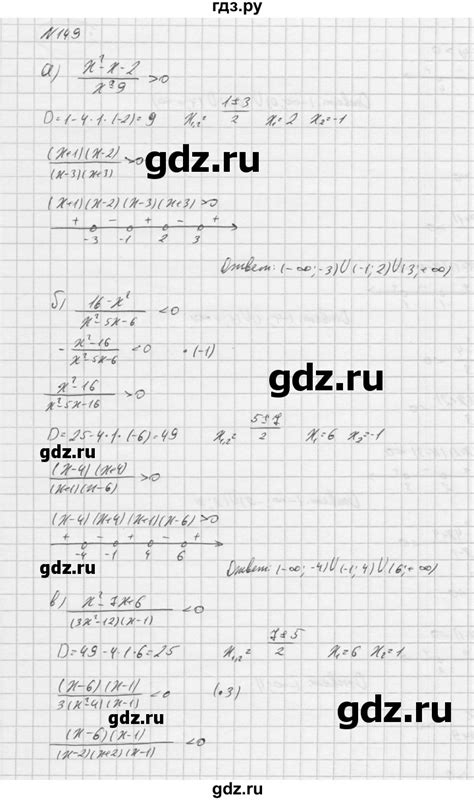 гдз.ру
N 149
а) (x²-x-2)/(x²-9) >0
D=1-4·1·(-2)=9 x₁,₂=(1±3)/2 x₁=2 x₂=-1
gdz.ru
((x+1)(x-2))/((x-3)(x+3)) >0
gdz.ru
(x+1)(x-2)(x-3)(x+3)>0
+ - + - +
-3 -1 2 3
Ответ: (-∞;-3)∪(-1;2)∪(3;+∞)
б) (16-x²)/(x²-5x-6) <0
-(x²-16)/(x²-5x-6) <0 ·(-1)
gdz.ru
(x²-16)/(x²-5x-16) >0
D=25-4·1·(-6)=49 x₁,₂=(5±7)/2 x₁=6 x₂=-1
gdz.ru
((x-4)(x+4))/((x+1)(x-6)) >0
(x-4)(x+4)(x+1)(x-6)>0
+ - + - +
-4 -1 4 6
gdz.ru
Ответ: (-∞;-4)∪(-1;4)∪(6;+∞)
в) (x²-7x+6)/((3x²-12)(x-1)) <0
D=49-4·1·6=25 x₁,₂=(7±5)/2 x₁=6 x₂=1
((x-6)(x-1))/(3(x²-4)(x-1)) <0 (·3)
gdz.ru
gdz.ru
((x-6)(x-1))/((x-2)(x+2)(x-1)) <0
gdz.ru